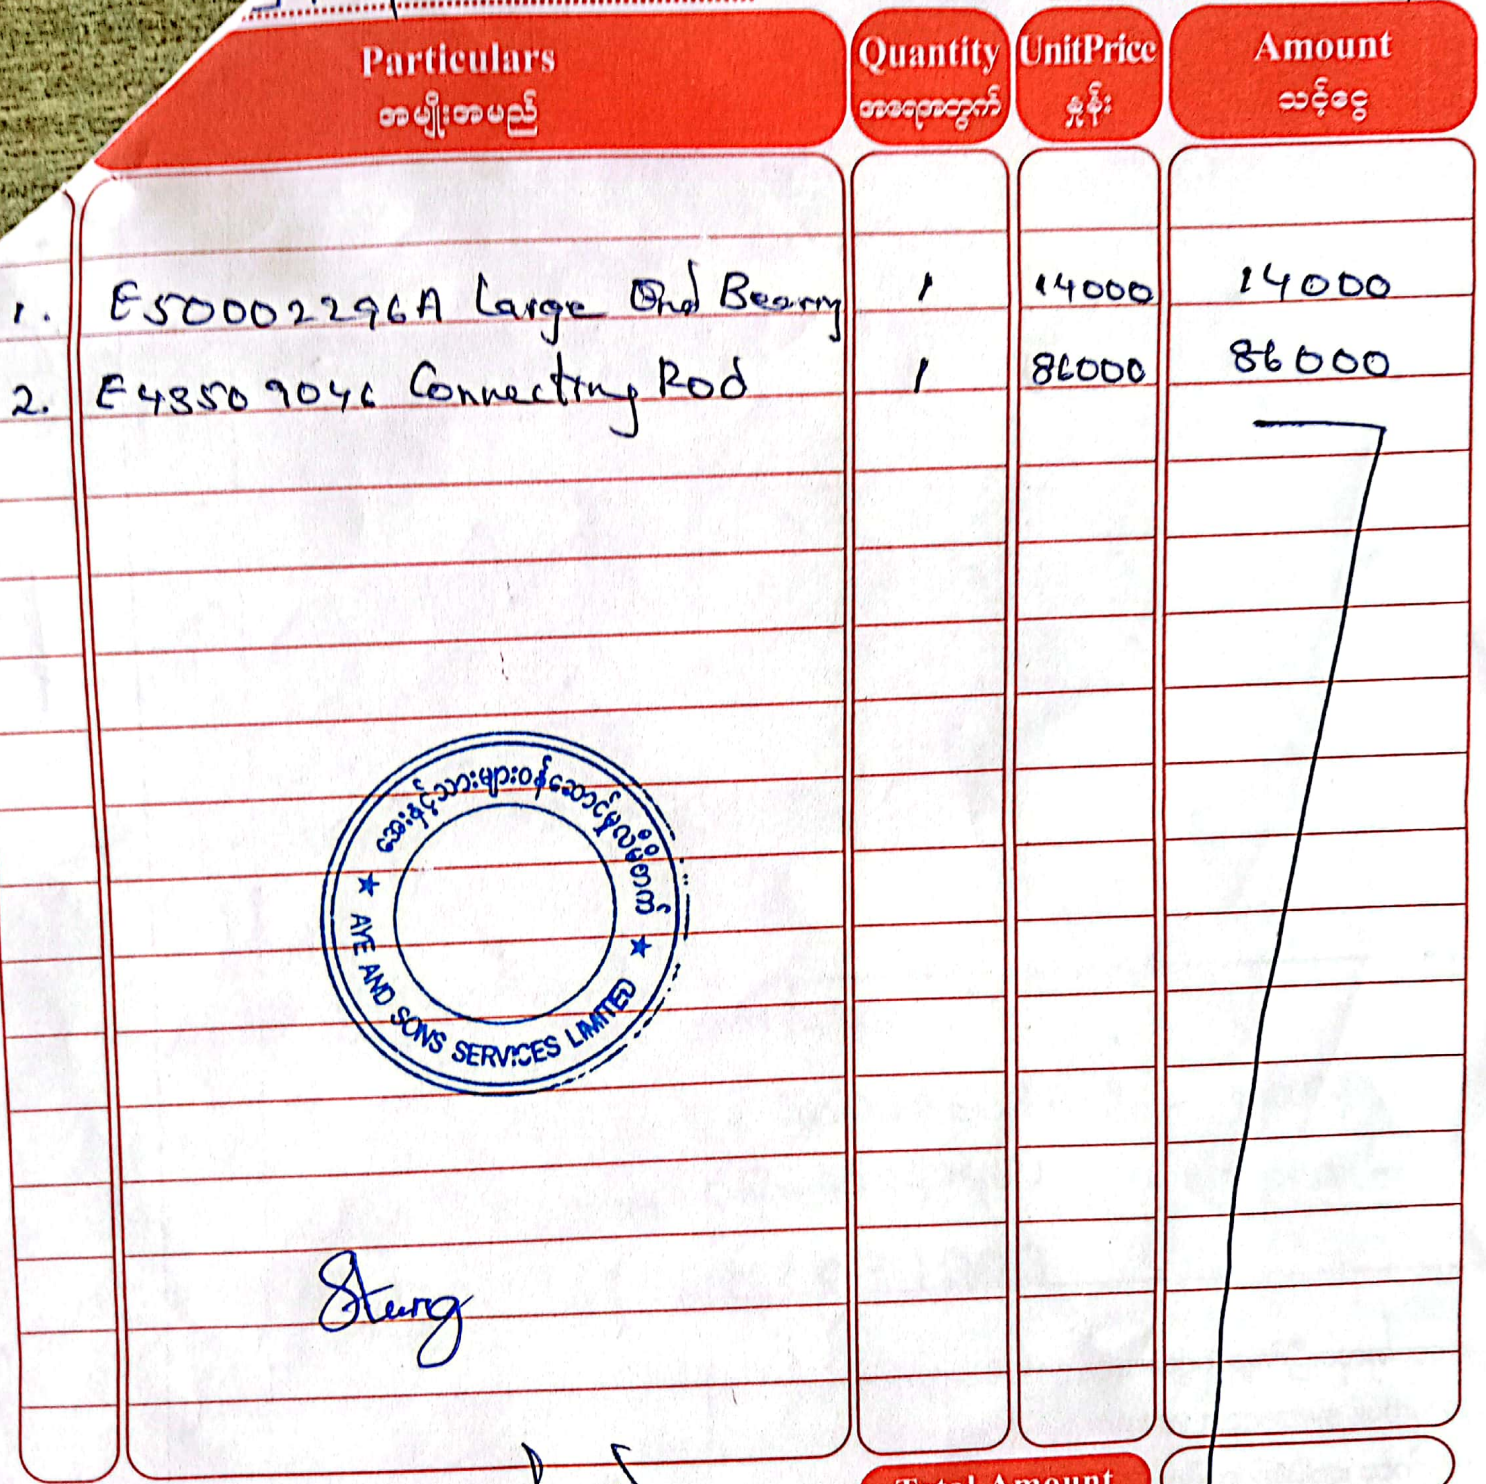 Particulars Quantity UnitPrice Amount
အမျိုးအမည် အရေအတွက် နှုန်း သင့်ငွေ
1. E50002296A Large End Bearing 1 14000 14000
2. E43509046 Connecting Rod 1 86000 86000
အေးနှင့်သားများဝန်ဆောင်မှုလိမိတက်
★ AYE AND SONS SERVICES LIMITED ★
Total Amount